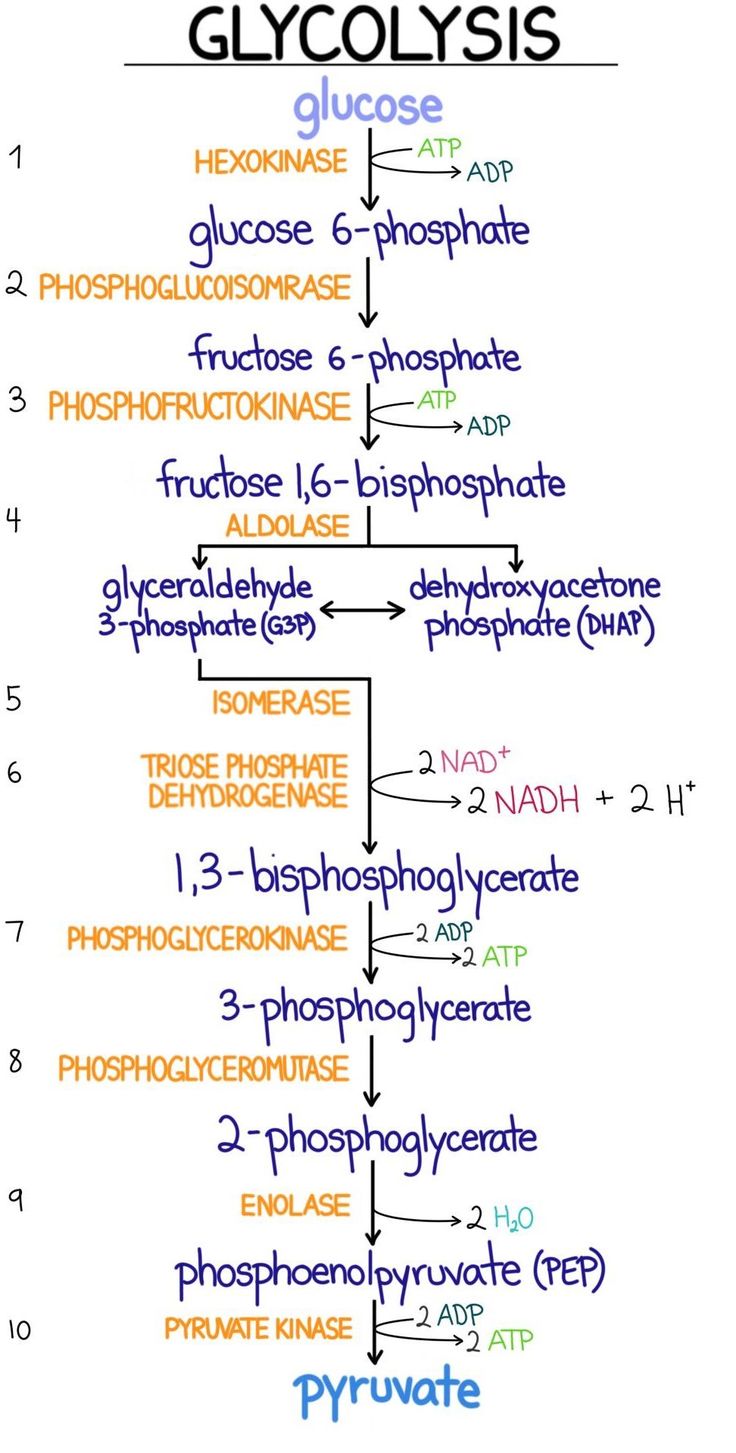 GLYCOLYSIS
glucose
1
HEXOKINASE
ATP
ADP
glucose 6-phosphate
2 PHOSPHOGLUCOISOMRASE
fructose 6-phosphate
3 PHOSPHOFRUCTOKINASE
ATP
ADP
fructose 1,6-bisphosphate
4
ALDOLASE
glyceraldehyde
3-phosphate (G3P)
dehydroxyacetone
phosphate (DHAP)
5
ISOMERASE
6
TRIOSE PHOSPHATE
DEHYDROGENASE
2 NAD⁺
2 NADH + 2 H⁺
1,3-bisphosphoglycerate
7
PHOSPHOGLYCEROKINASE
2 ADP
2 ATP
3-phosphoglycerate
8 PHOSPHOGLYCEROMUTASE
2-phosphoglycerate
9
ENOLASE
2 H₂O
phosphoenolpyruvate (PEP)
10
PYRUVATE KINASE
2 ADP
2 ATP
pyruvate